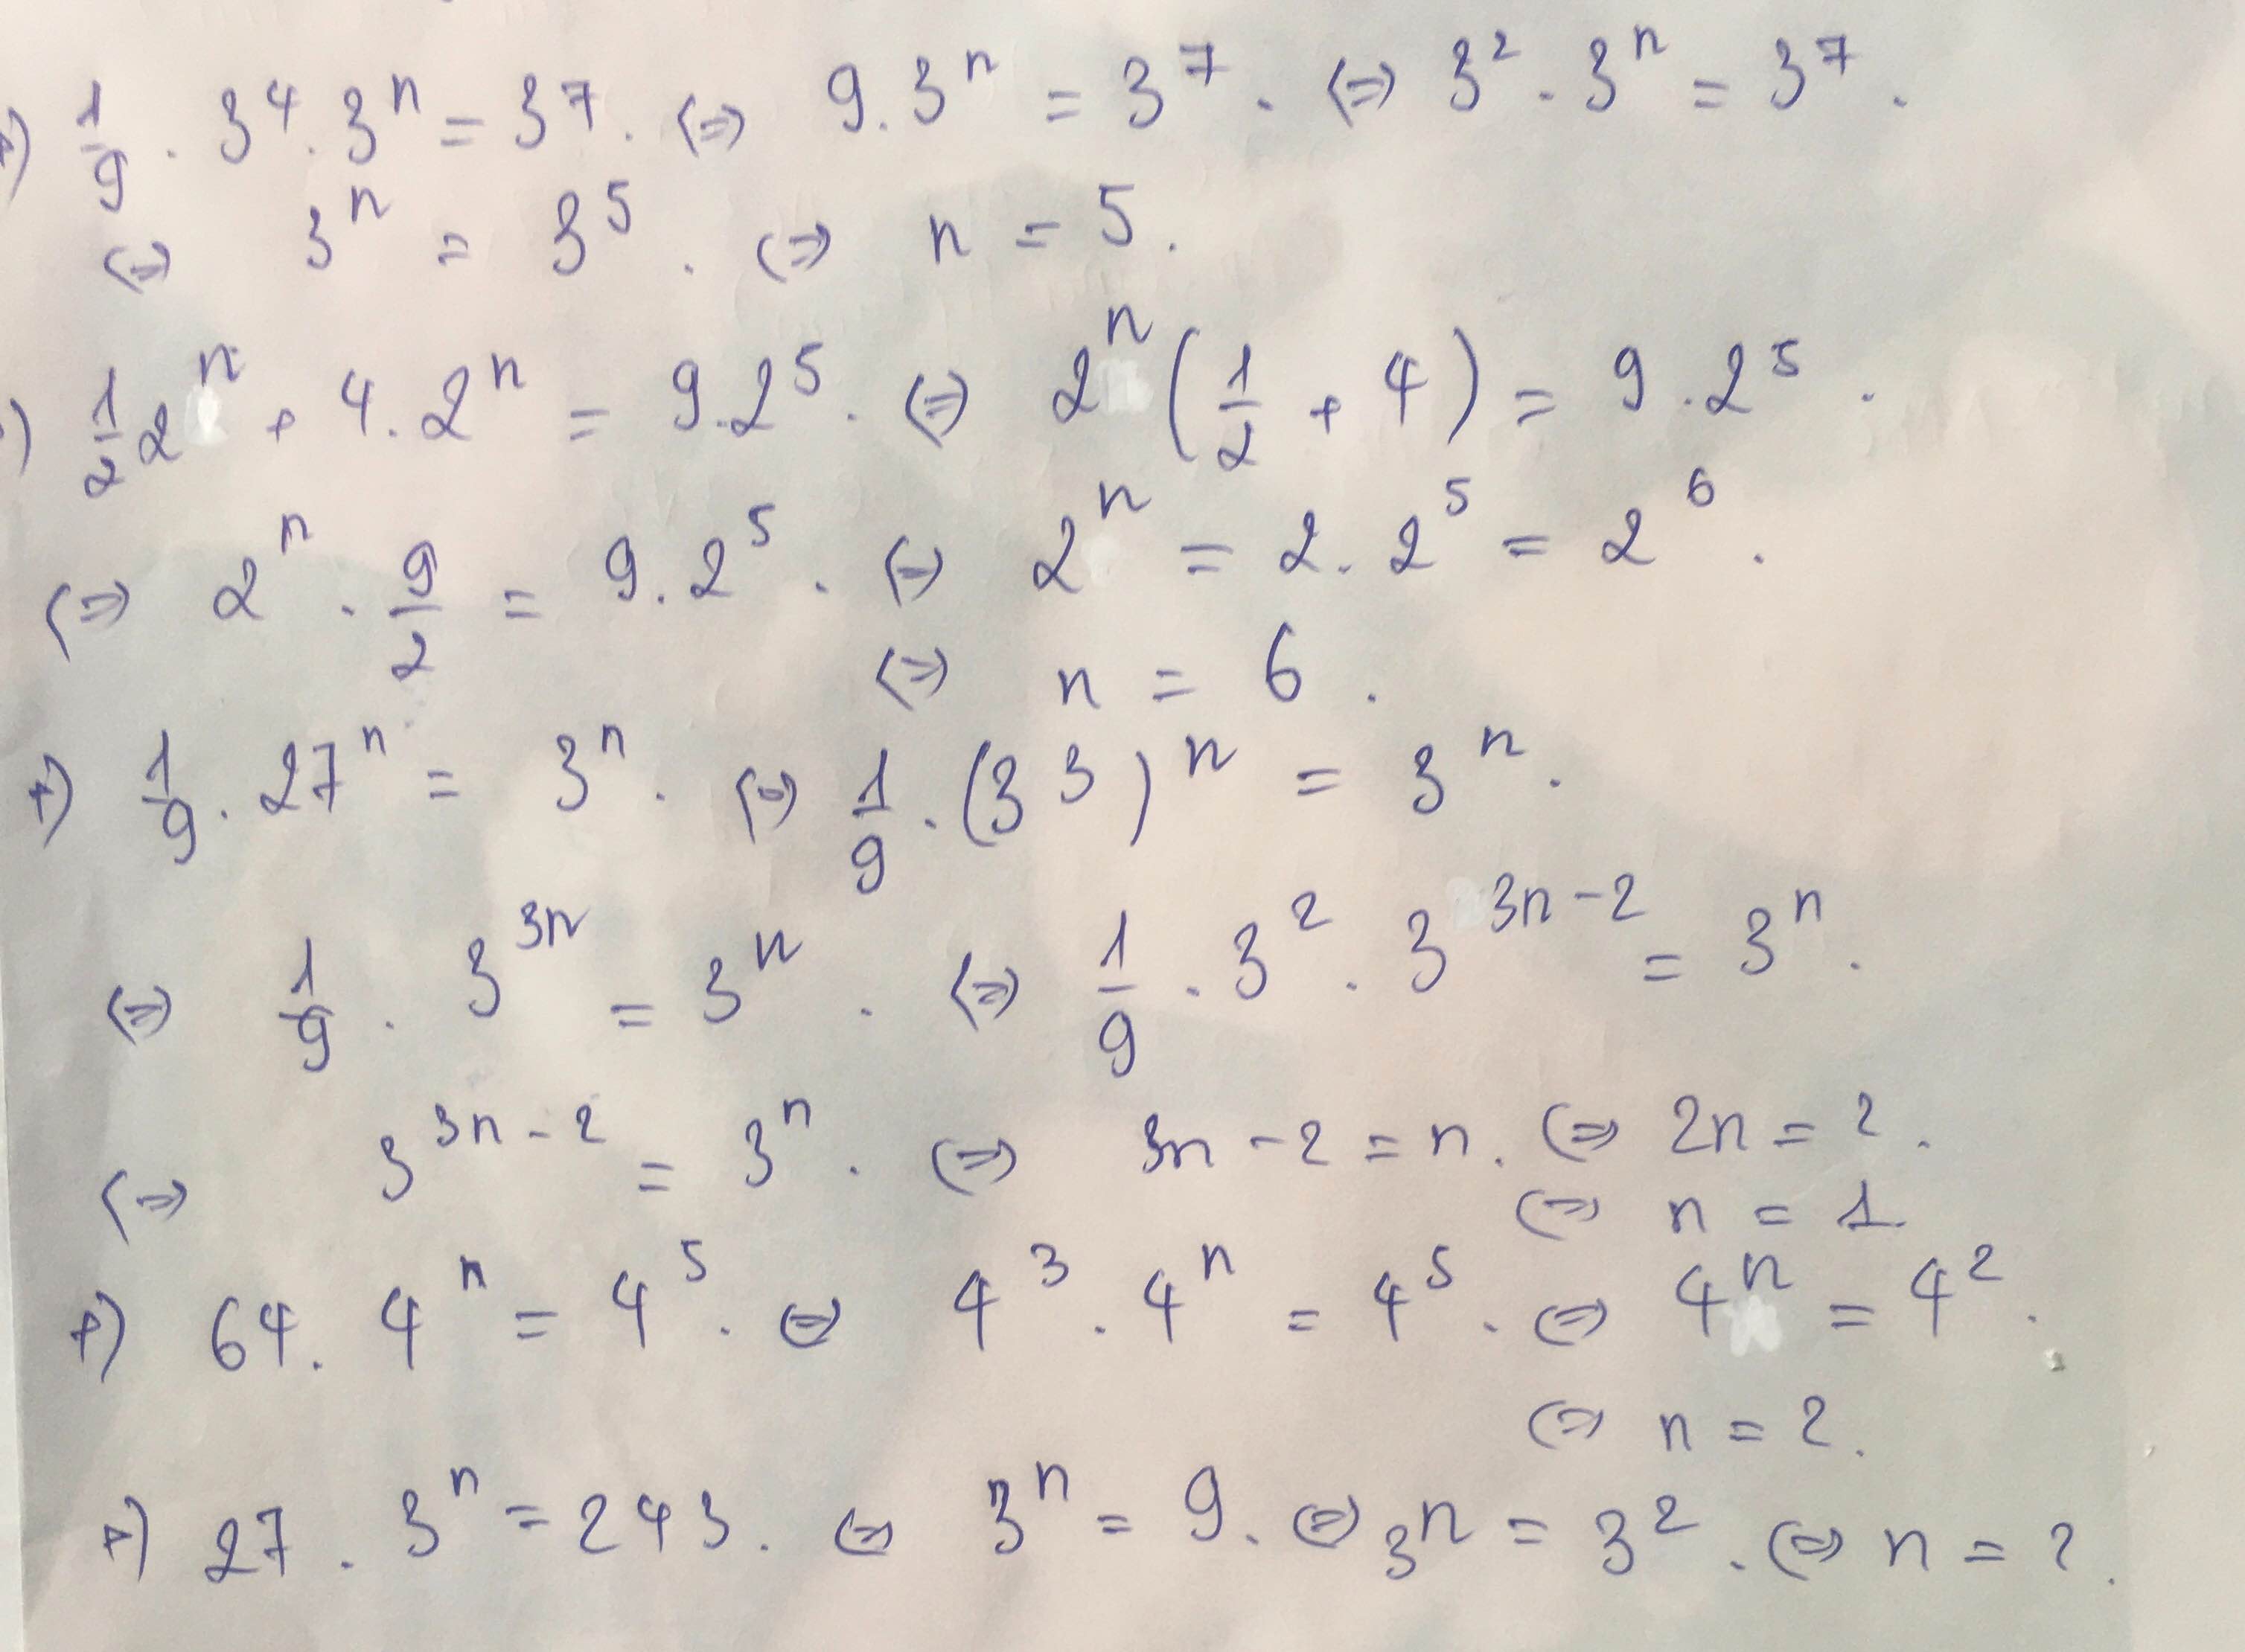 +) 1/9 . 3^4 . 3^n = 3^7 . <=> 9 . 3^n = 3^7 . <=> 3^2 . 3^n = 3^7 .
<=> 3^n = 3^5 . <=> n = 5 .
+) 1/2 2^n + 4 . 2^n = 9 . 2^5 . <=> 2^n (1/2 + 4) = 9 . 2^5 .
<=> 2^n . 9/2 = 9 . 2^5 . <=> 2^n = 2 . 2^5 = 2^6 .
<=> n = 6 .
+) 1/9 . 27^n = 3^n . <=> 1/9 . (3^3)^n = 3^n .
<=> 1/9 . 3^{3n} = 3^n . <=> 1/9 . 3^2 . 3^{3n-2} = 3^n .
<=> 3^{3n-2} = 3^n . <=> 3n - 2 = n . <=> 2n = 2 .
<=> n = 1
+) 64 . 4^n = 4^5 . <=> 4^3 . 4^n = 4^5 . <=> 4^n = 4^2 .
<=> n = 2 .
+) 27 . 3^n = 243 . <=> 3^n = 9 . <=> 3^n = 3^2 . <=> n = 2 .